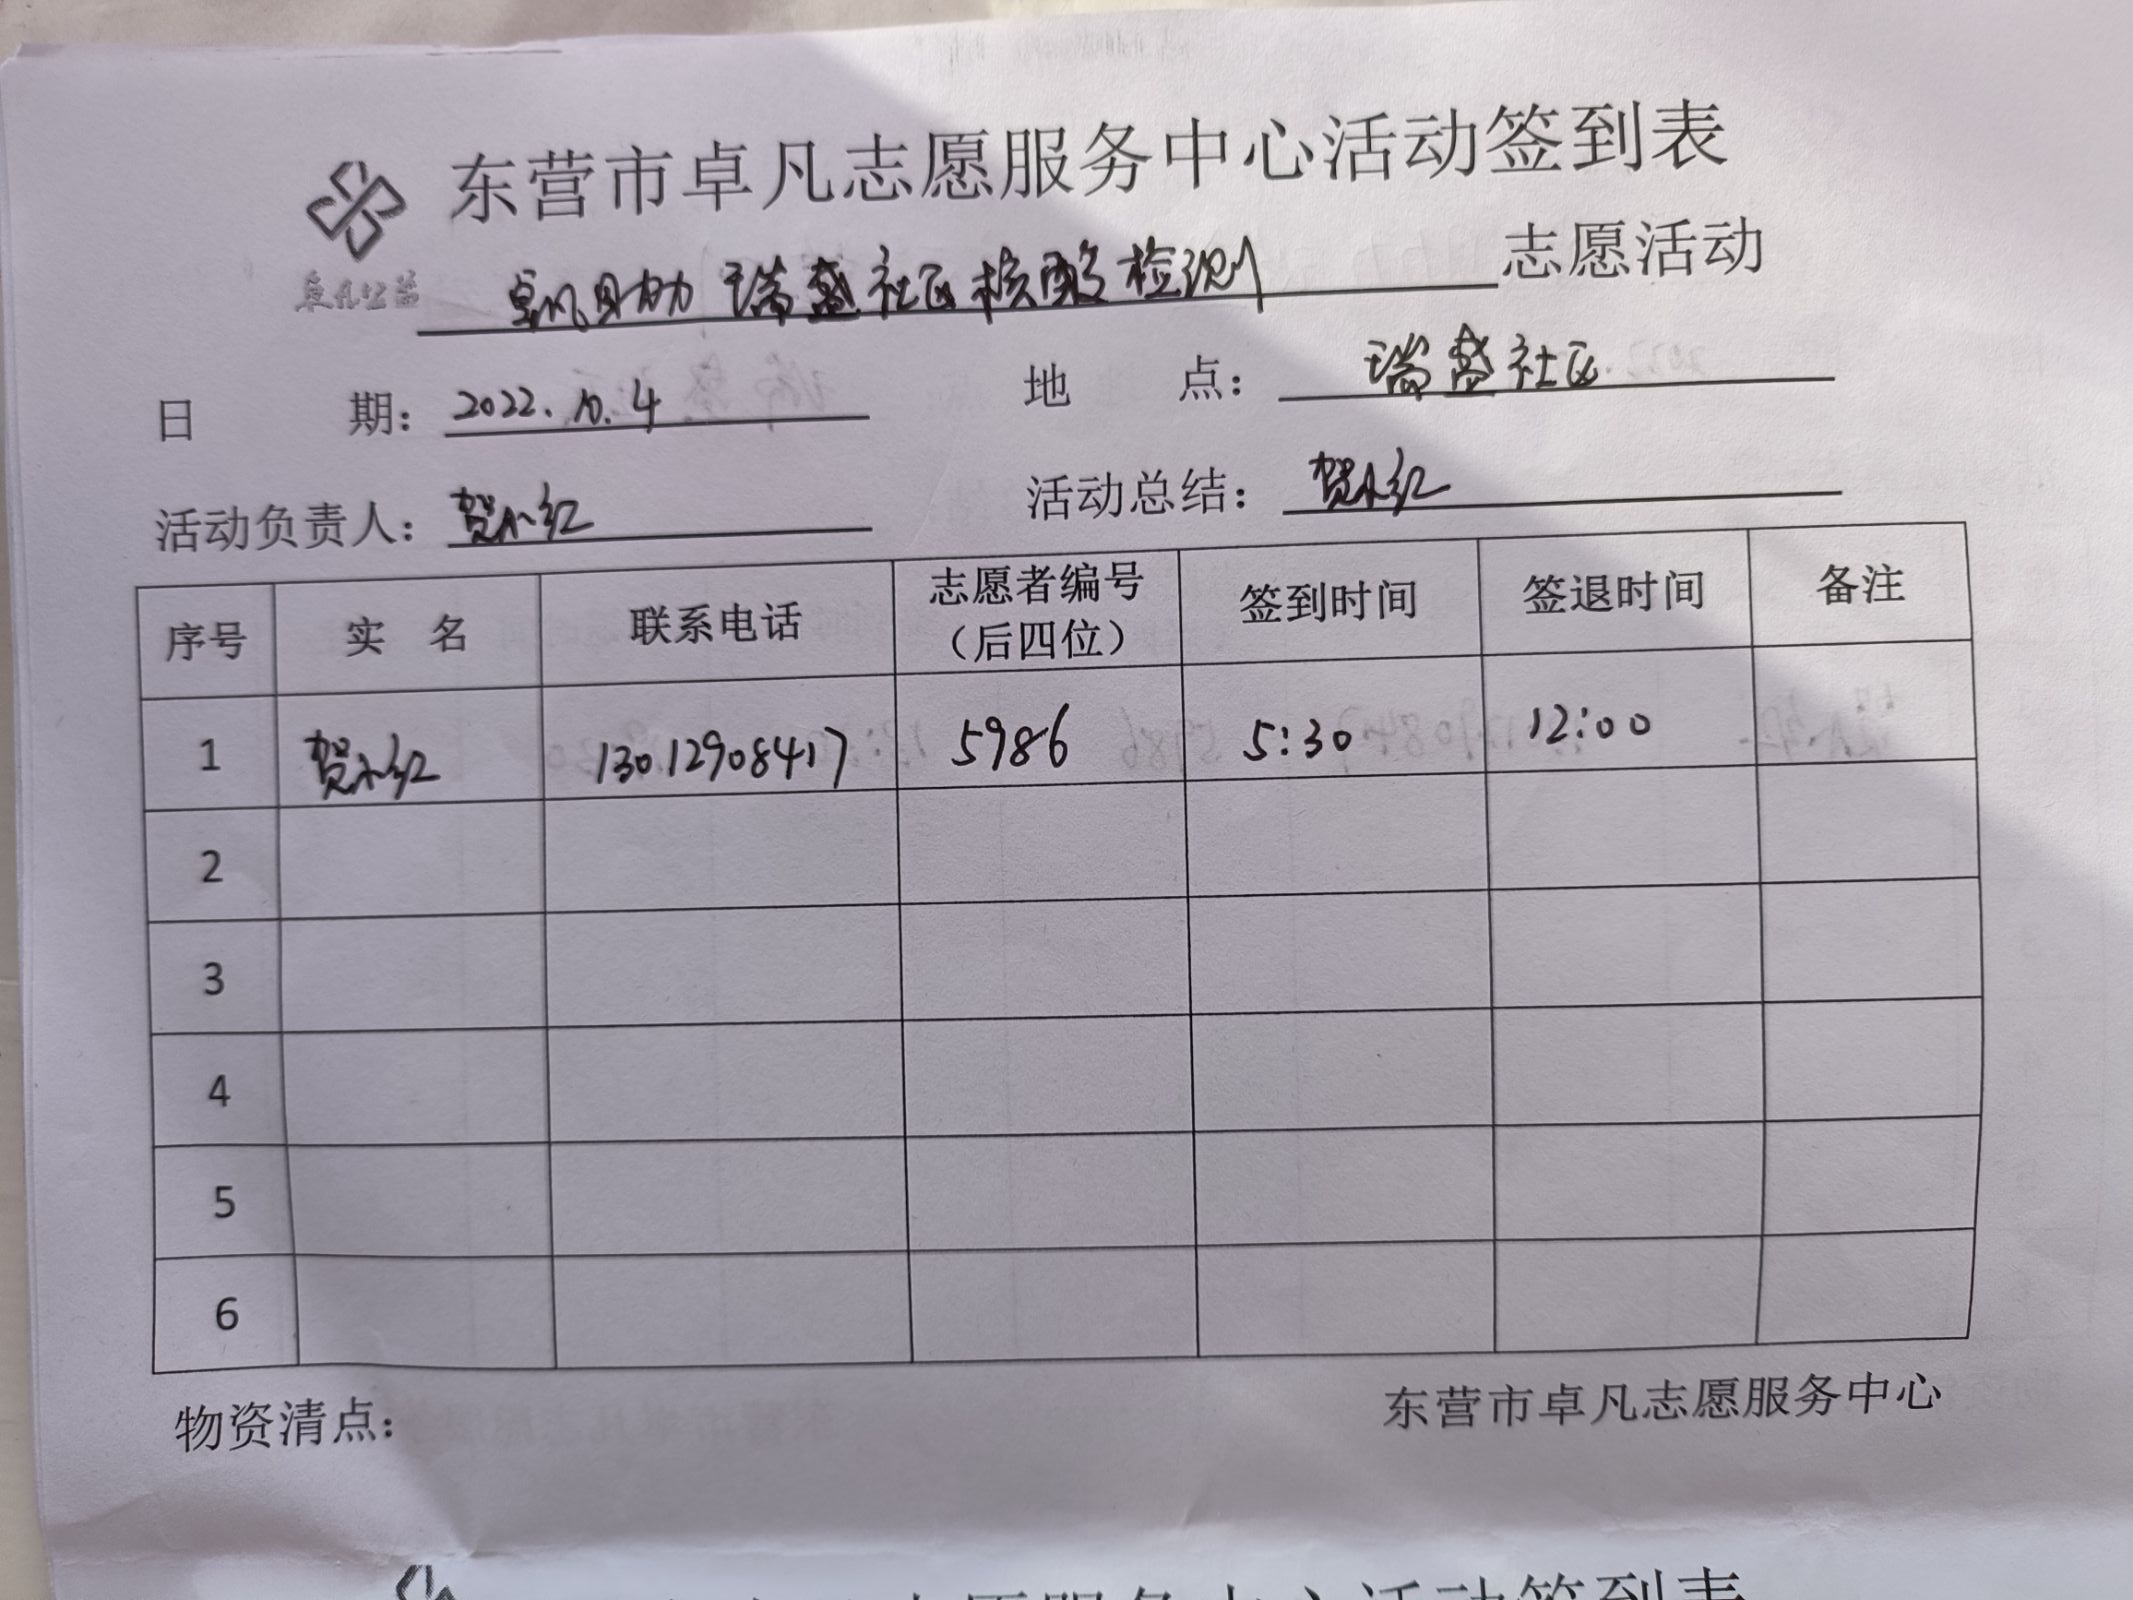 东营市卓凡志愿服务中心活动签到表
卓凡公益
卓凡助力 瑞盛社区核酸检测 志愿活动
日 期：2022.10.4 地 点：瑞盛社区
活动负责人：贺小红 活动总结：贺小红
序号 实 名 联系电话 志愿者编号（后四位） 签到时间 签退时间 备注
1 贺小红 13012908417 5986 5:30 12:00
2
3
4
5
6
物资清点： 东营市卓凡志愿服务中心
志愿服务中心活动签到表